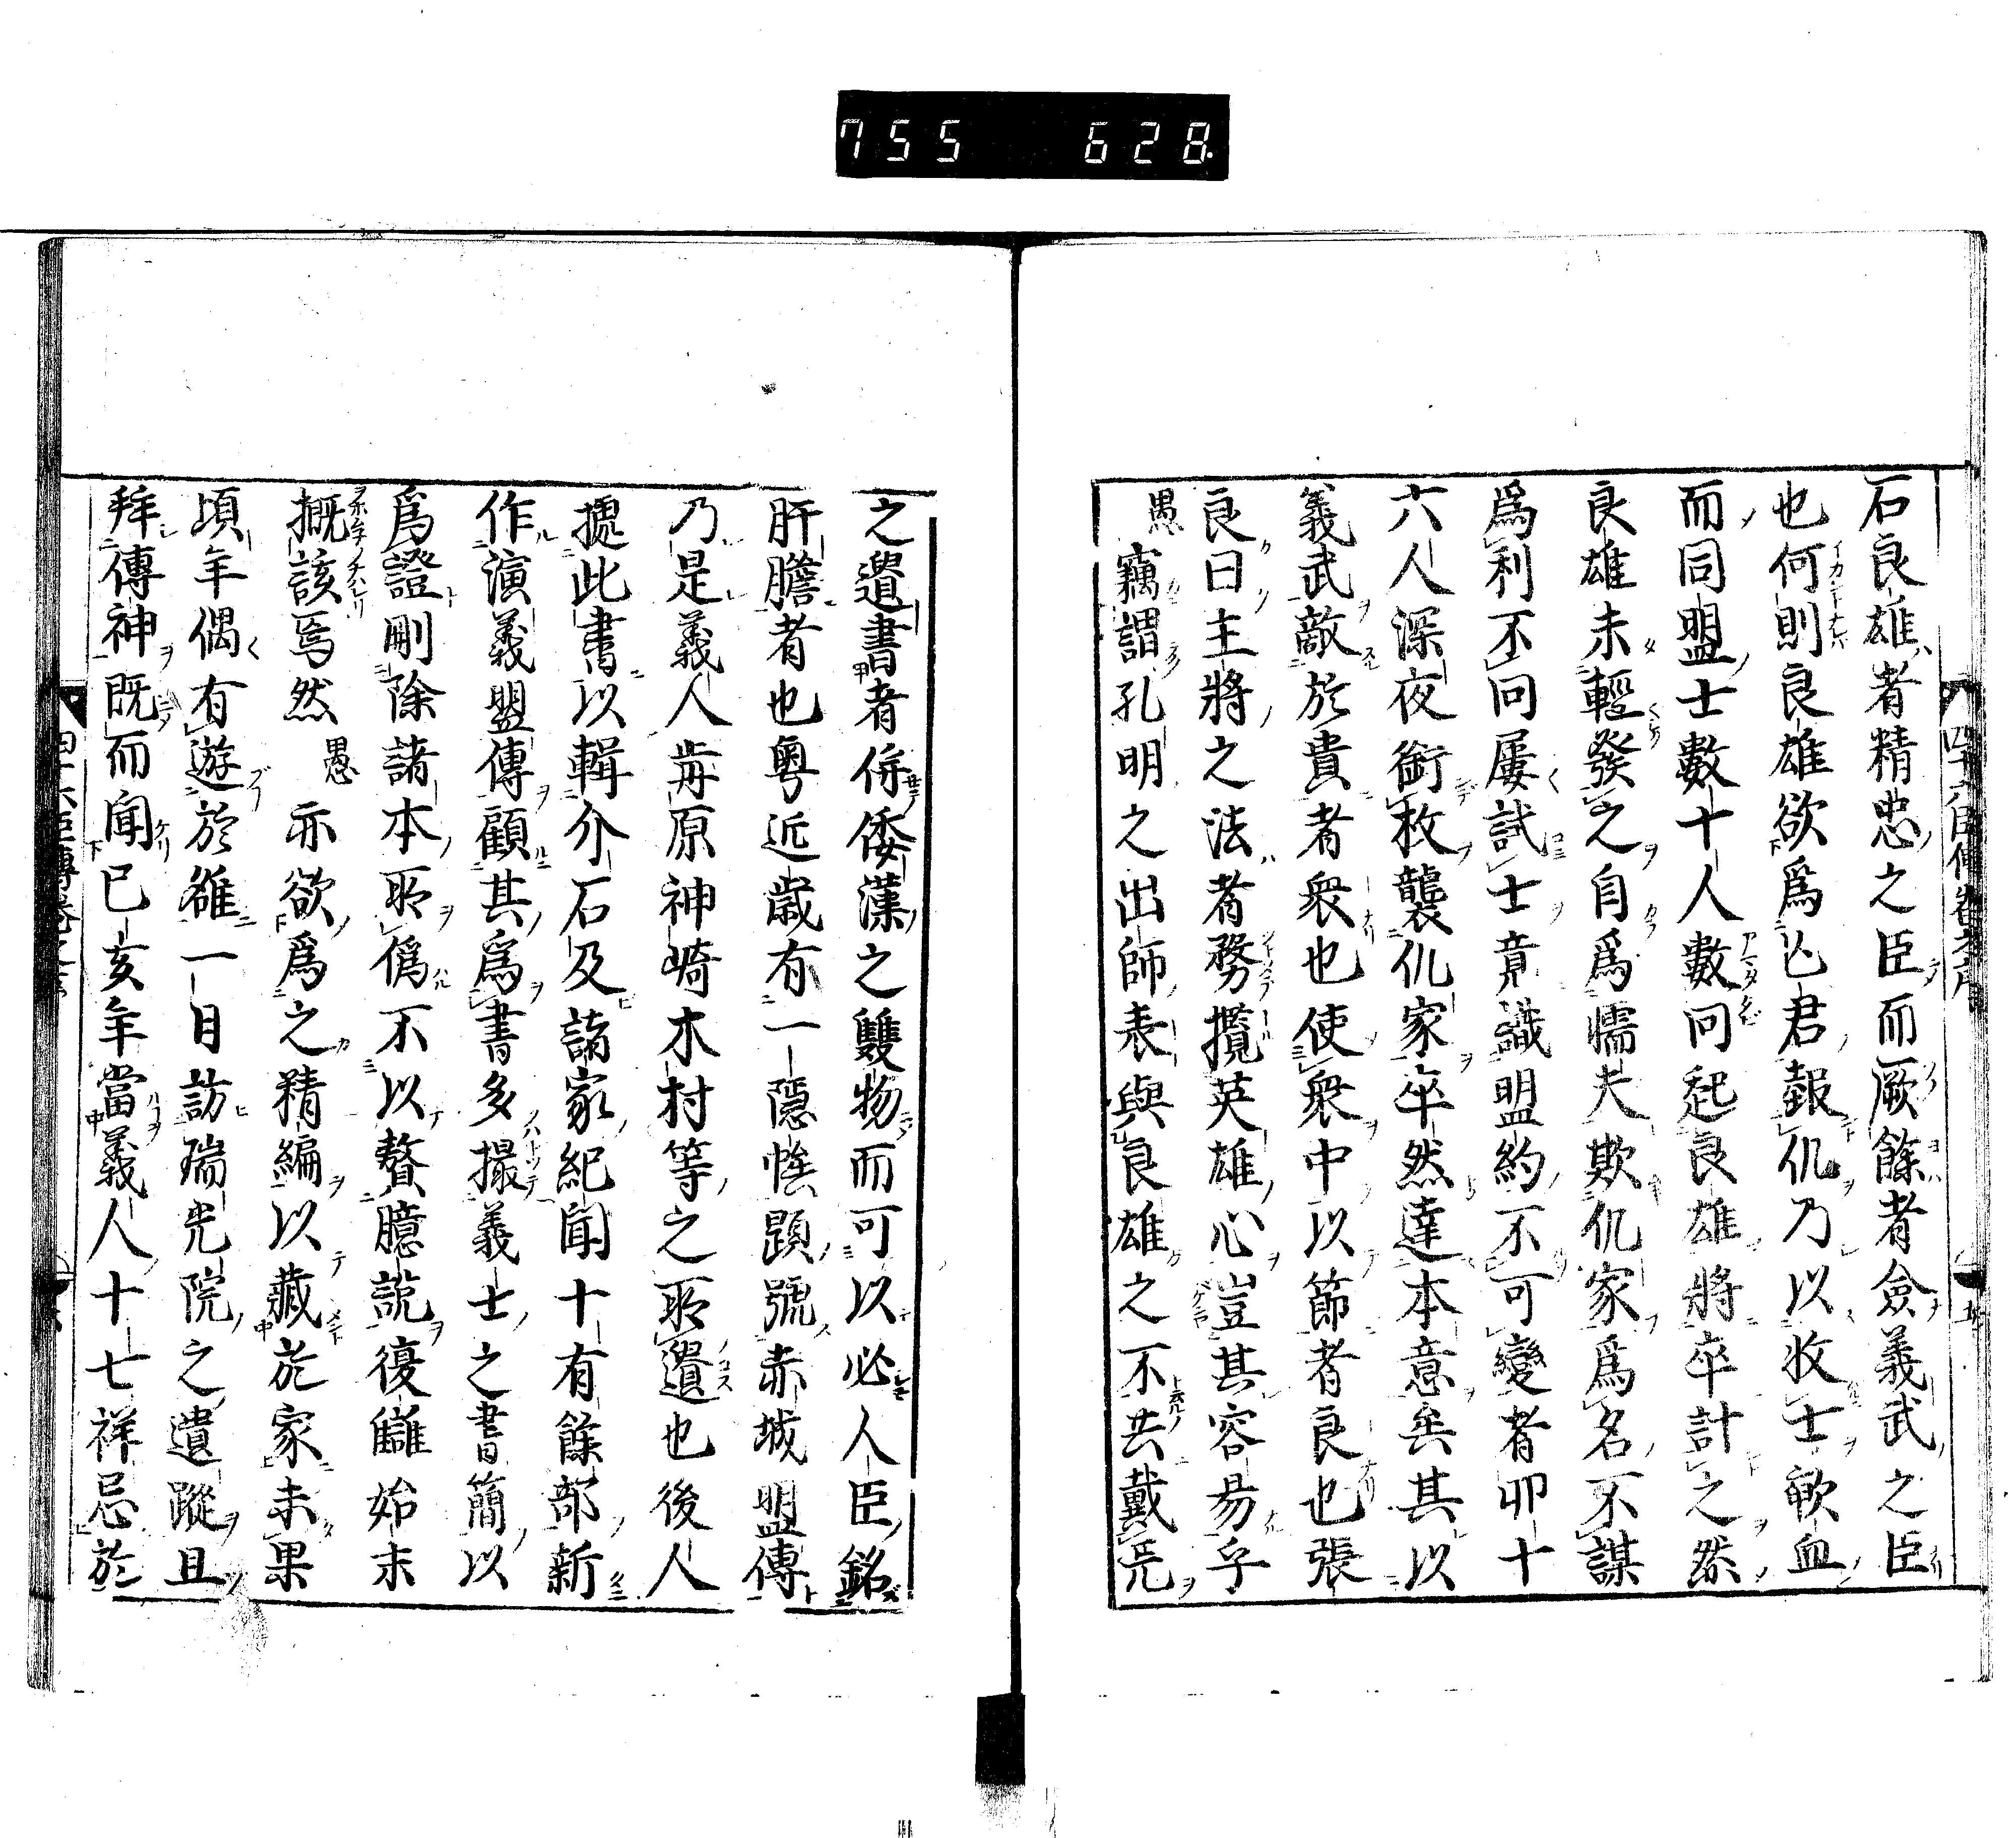 755 628
石良雄者精忠之臣而厥餘者僉義武之臣
也何則良雄欲爲亡君報仇乃以收士歃血
而同盟士數十人數問起良雄將卒計之然
良雄未輕發之自爲懦夫欺仇家爲名不謀
爲利不問屢試士竟識盟約不可變者卯十
六人深夜銜枚襲仇家卒然達本意矣其以
義武敵於貴者衆也使衆中以節者良也張
良曰主將之法者務攬英雄心豈其容易乎
愚竊謂孔明之出師表與良雄之不共戴兲
之遺書者併倭漢之雙物而可以必人臣銘
肝膽者也粤近歳有一隱恠題號赤城盟傳
乃是義人前原神崎木村等之所遺也後人
據此書以輯介石及諸家紀聞十有餘部新
作演義盟傳顧其爲書多撮義士之書簡以
爲證刪除諸本所僞不以贅臆說復讎始末
概該焉然愚亦欲爲之精編以藏於家未果
頃年偶有遊於雒一日訪瑞光院之遺蹤且
拜傳神既而聞已亥年當義人十七祥忌於